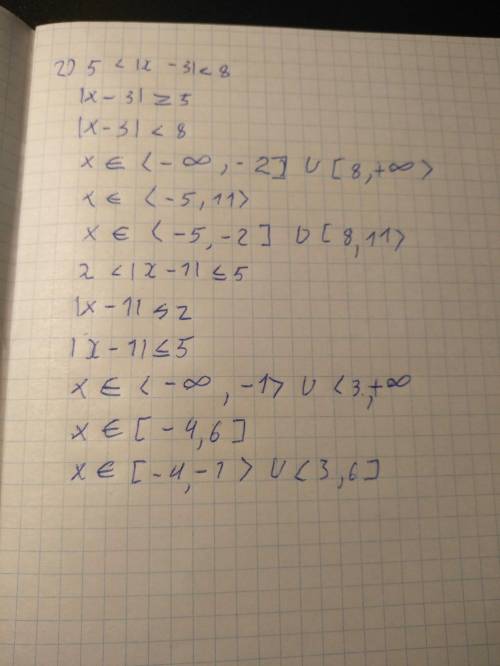 2) 5 < |x - 3| < 8
|x - 3| ≥ 5
|x - 3| < 8
x ∈ ⟨-∞, -2] ∪ [8, +∞⟩
x ∈ ⟨-5, 11⟩
x ∈ ⟨-5, -2] ∪ [8, 11⟩
2 < |x - 1| ≤ 5
|x - 1| ≤ 2
|x - 1| ≤ 5
x ∈ ⟨-∞, -1⟩ ∪ ⟨3, +∞
x ∈ [-4, 6]
x ∈ [-4, -1⟩ ∪ ⟨3, 6]